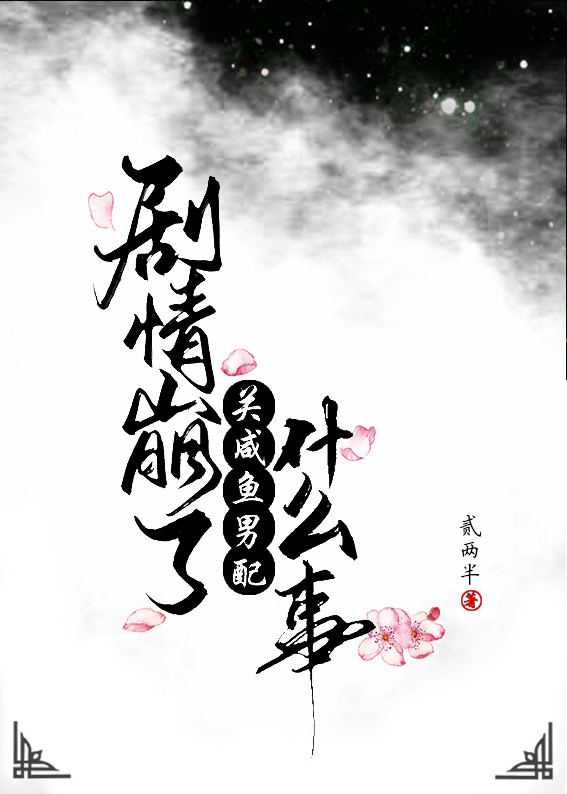 剧情崩了
关咸鱼男配
什么事
贰两半
著